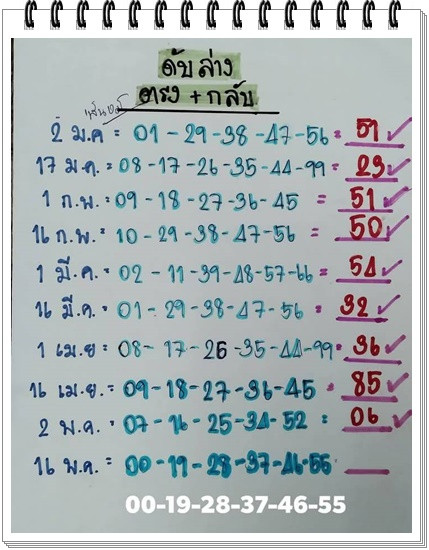 ดับล่าง
ตรง + กลับ
2 ม.ค = 01 - 29 - 38 - 47 - 56 = 51
17 ม.ค. = 08 - 17 - 26 - 35 - 44 - 99 = 23
1 ก.พ. = 09 - 18 - 27 - 36 - 45 = 51
16 ก.พ. = 10 - 29 - 38 - 47 - 56 = 50
1 มี.ค. = 02 - 11 - 39 - 48 - 57 - 66 = 54
16 มี.ค. = 01 - 29 - 38 - 47 - 56 = 32
1 เม.ย = 08 - 17 - 26 - 35 - 44 - 99 = 36
16 เม.ย. = 09 - 18 - 27 - 36 - 45 = 85
2 พ.ค. = 07 - 16 - 25 - 34 - 52 = 06
16 พ.ค. = 00 - 19 - 28 - 37 - 46 - 55
00-19-28-37-46-55